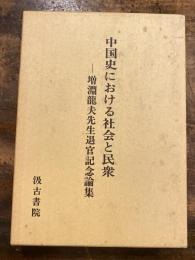 中国史における社会と民衆
―増淵龍夫先生退官記念論集
汲古書院